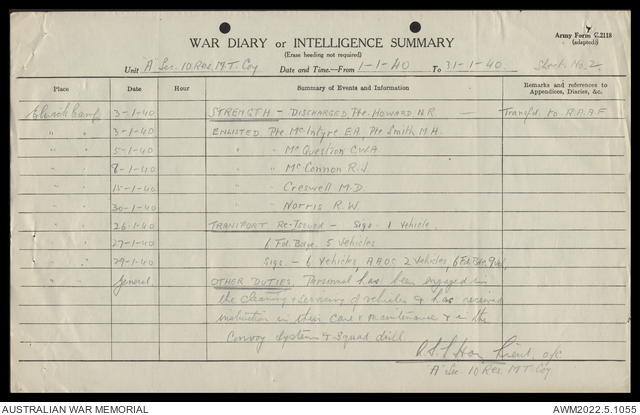 Army Form C.2118
(adapted)
WAR DIARY or INTELLIGENCE SUMMARY
(Erase heading not required)
Unit A Sec. 10 Res. M.T. Coy Date and Time.—From 1-1-40 To 31-1-40. Sheet No. 2
Place Date Hour Summary of Events and Information Remarks and references to Appendices, Diaries, &c.
Camp 3-1-40 STRENGTH - DISCHARGED Pte. HOWARD. — Transfd. to R.A.A.F
" " 3-1-40 ENLISTED. Pte McIntyre E.A. Pte Smith M.H.
" " 5-1-40 " " McQuestion
" " 8-1-40 " " McConnon R.J.
" " 15-1-40 " " Creswell M.D.
" " 30-1-40 " " Norris R.W.
" " 26-1-40 TRANSPORT Re-Issued - Sigs - 1 Vehicle.
" " 27-1-40 6 Fd. Bde. 5 Vehicles
" " 29-1-40 Sigs. - 6 Vehicles, AAOC 2 Vehicles, 6 Fd. Bde.
" " General OTHER DUTIES. Personnel has been engaged in
the cleaning & servicing of vehicles & has received
instruction in their care & maintenance & in the
Convoy System & Squad drill
Lieut. o/c
A Sec 10 Res. M.T. Coy
AUSTRALIAN WAR MEMORIAL
AWM2022.5.1055